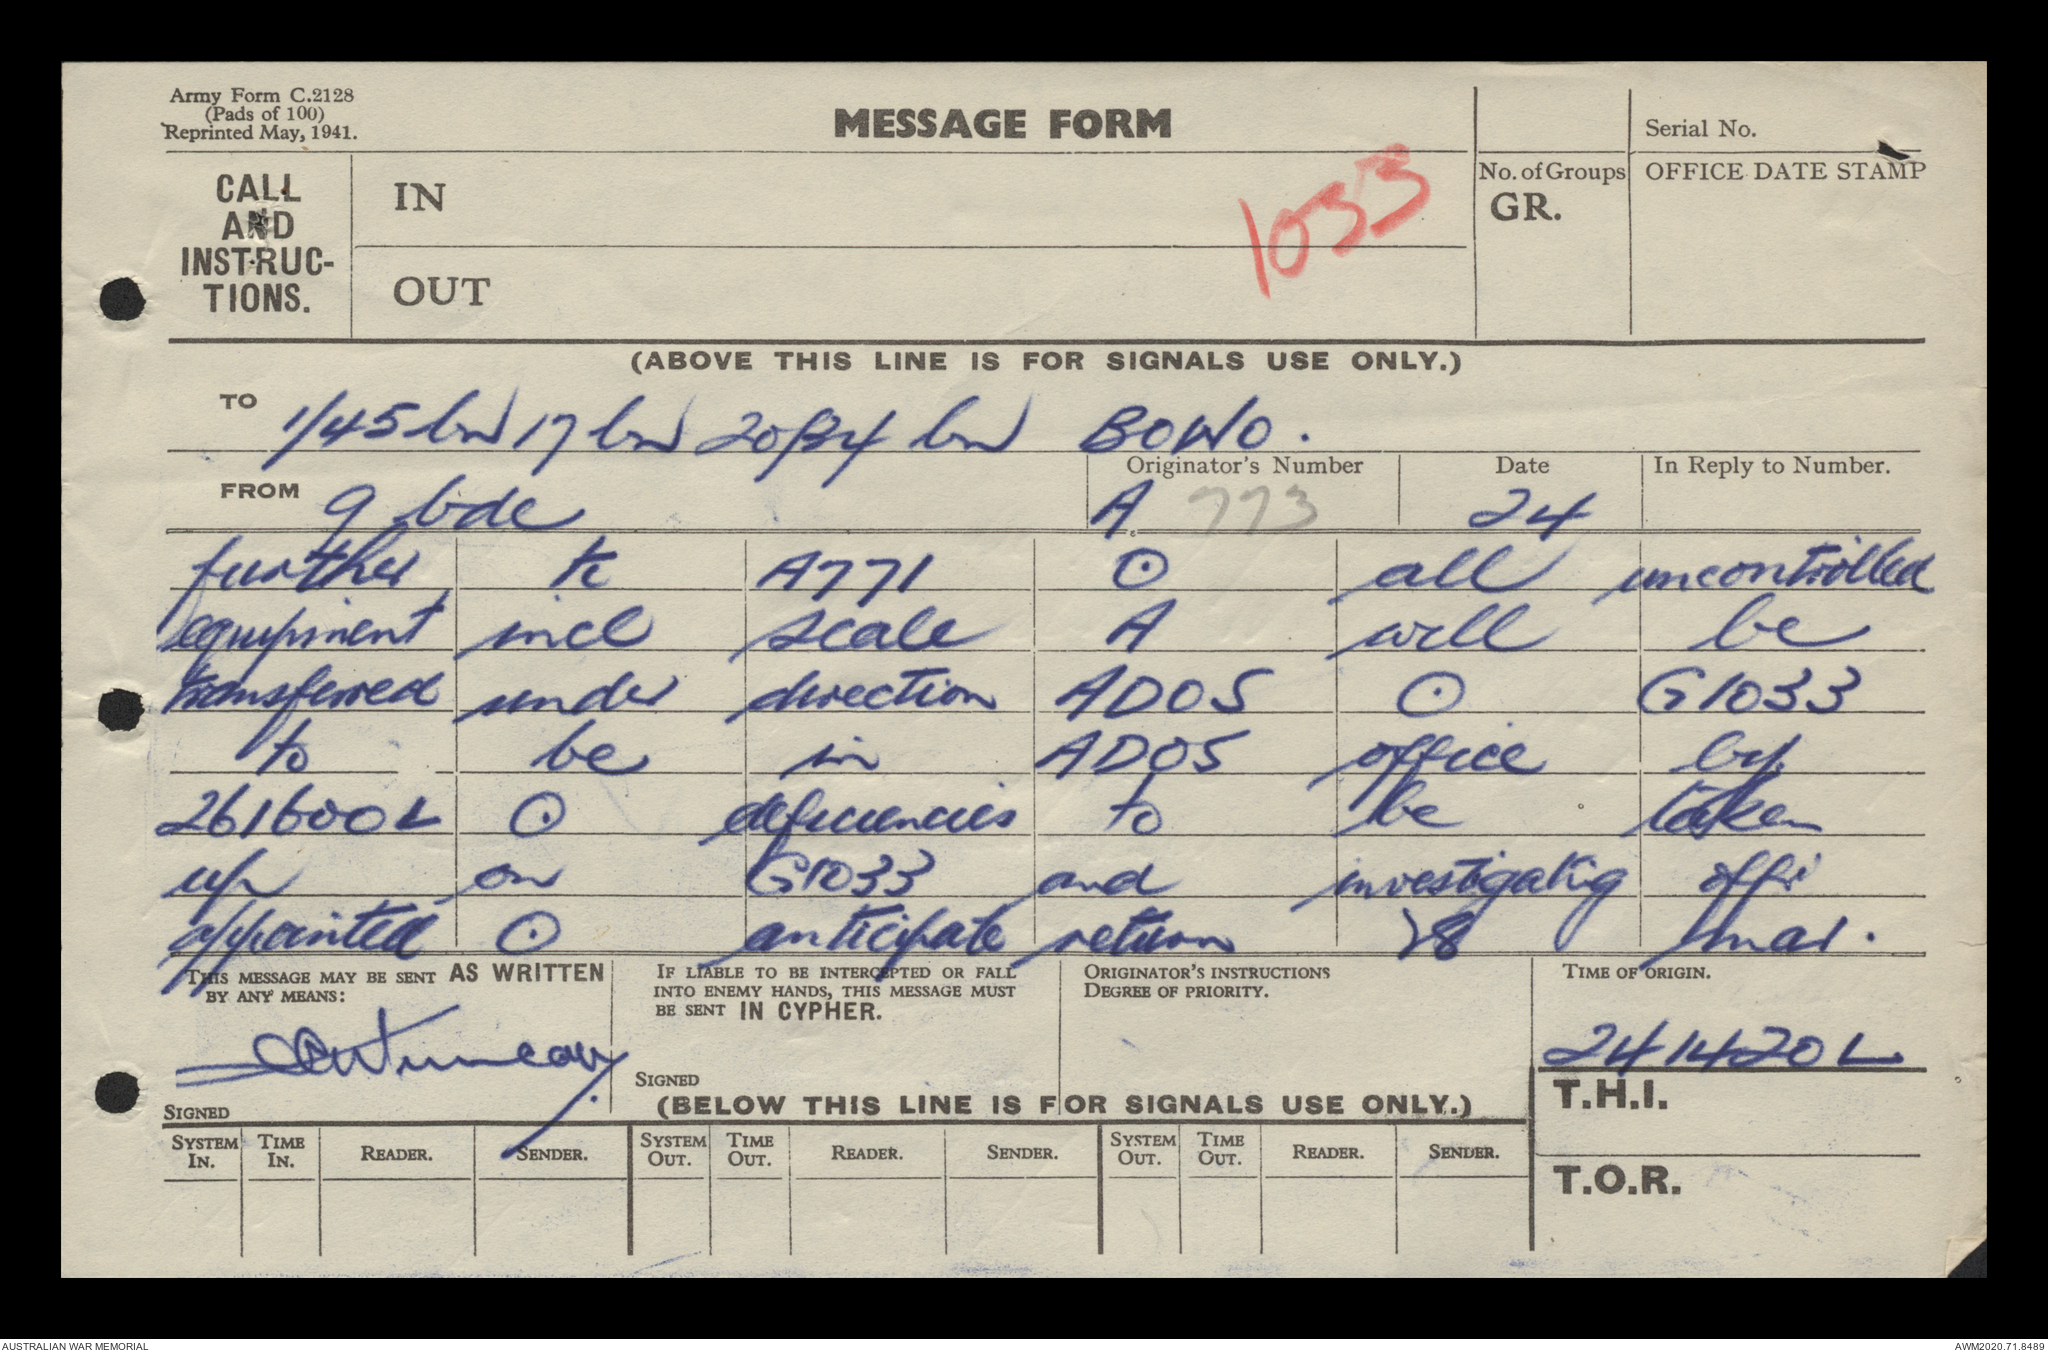 Army Form C.2128
(Pads of 100)
Reprinted May, 1941.
MESSAGE FORM
Serial No.
1033
CALL AND INSTRUC-TIONS.
IN
OUT
No. of Groups
GR.
OFFICE DATE STAMP
(ABOVE THIS LINE IS FOR SIGNALS USE ONLY.)
TO 1/45 bn 17 bn 20/34 bn BOWO.
FROM 9 bde
Originator's Number
A 773
Date
24
In Reply to Number.
further to A771 ⊙ all uncontrolled
equipment incl scale A will be
transferred under direction ADOS ⊙ G1033
to be in ADOS office by
261600L ⊙ deficiencies to be taken
up on G1033 and investigating offr
appointed ⊙ anticipate return 28 mar.
THIS MESSAGE MAY BE SENT AS WRITTEN
BY ANY MEANS:
SIGNED
IF LIABLE TO BE INTERCEPTED OR FALL
INTO ENEMY HANDS, THIS MESSAGE MUST
BE SENT IN CYPHER.
SIGNED
ORIGINATOR'S INSTRUCTIONS
DEGREE OF PRIORITY.
TIME OF ORIGIN.
241420L
(BELOW THIS LINE IS FOR SIGNALS USE ONLY.)
T.H.I.
SYSTEM IN. TIME IN. READER. SENDER. SYSTEM OUT. TIME OUT. READER. SENDER. SYSTEM OUT. TIME OUT. READER. SENDER.
T.O.R.
AUSTRALIAN WAR MEMORIAL
AWM2020.71.8489